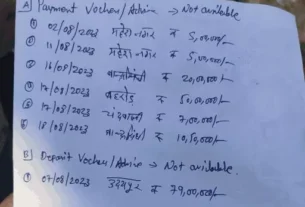 A) Payment Vocher/Advice → Not available
① 02/08/2023 महेश नगर ₹ 5,00,000/-
② 11/08/2023 महेश नगर ₹ 5,00,000/-
③ 16/08/2023 ₹ 20,00,000/-
④ 17/08/2023 ₹ 50,00,000/-
⑤ 17/08/2023 ₹ 7,00,000/-
⑥ 18/08/2023 ₹ 10,50,000/-
B) Deposit Vocher/Advice → Not available.
① 07/08/2023 उदयपुर ₹ 79,00,000/-